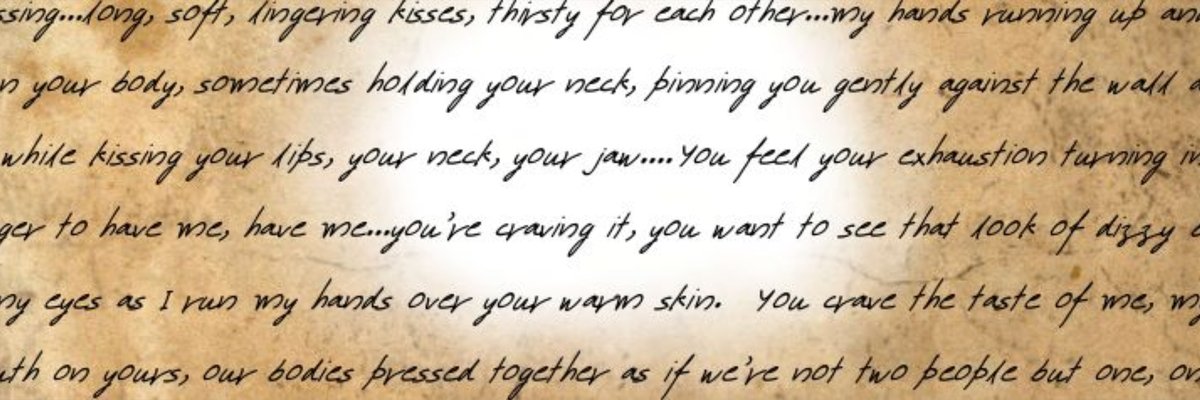 ssing...long, soft, lingering kisses, thirsty for each other...my hands running up an
n your body, sometimes holding your neck, pinning you gently against the wall a
while kissing your lips, your neck, your jaw....You feel your exhaustion turning in
ger to have me, have me...you're craving it, you want to see that look of dizzy
my eyes as I run my hands over your warm skin. You crave the taste of me, my
uth on yours, our bodies pressed together as if we're not two people but one, on